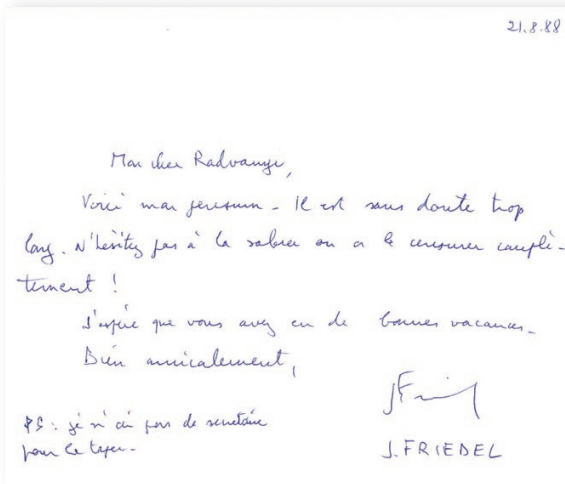 21.8.88
Mon cher Radvanyi,
Voici mon pensum - Il est sans doute trop
long. N'hésitez pas à le sabrer ou à le censurer complè-
tement !
J'espère que vous avez eu de bonnes vacances -
Bien amicalement,
PS : je n'ai pas de secrétaire
pour le taper -
J. FRIEDEL